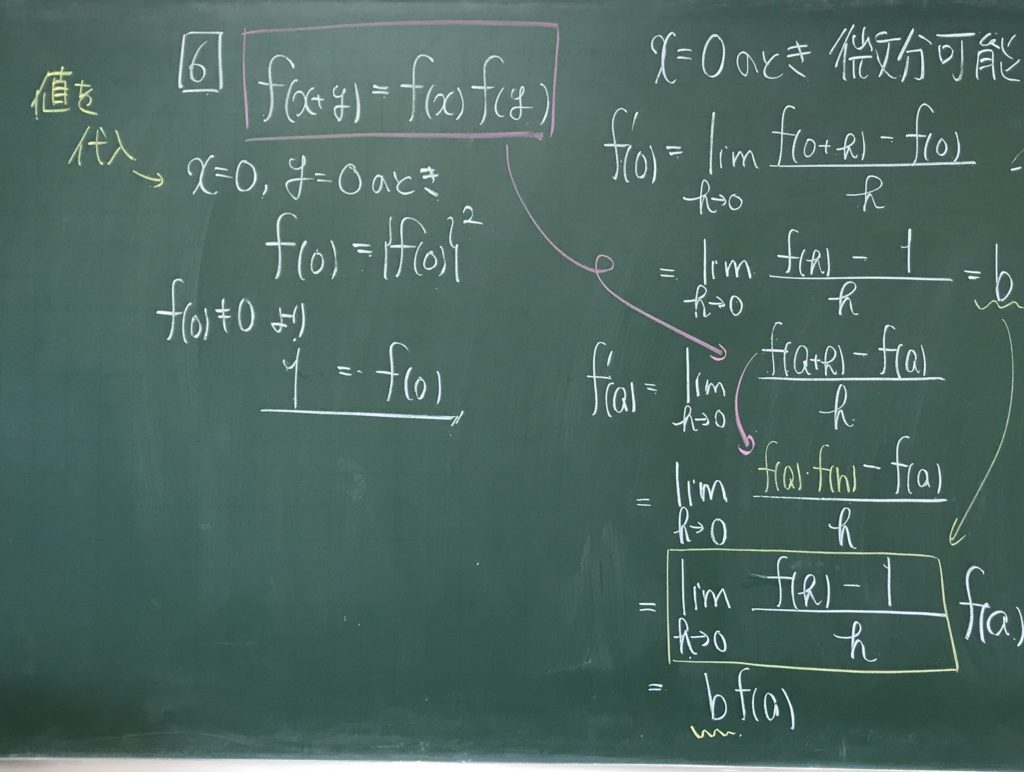 値を
代入
6 f(x+y) = f(x) f(y)
x=0, y=0 のとき
f(0) = {f(0)}²
f(0)≠0 より
1 = f(0)
x=0 のとき 微分可能
f'(0) = lim h→0 f(0+h) - f(0) / h
= lim h→0 f(h) - 1 / h = b
f'(a) = lim h→0 f(a+h) - f(a) / h
= lim h→0 f(a)・f(h) - f(a) / h
= lim h→0 f(h) - 1 / h f(a)
= b f(a)